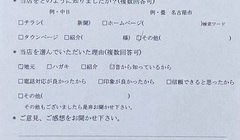 当店をどのように知りましたか?(複数回答可)
例・中日　例・畳　名古屋市
□チラシ(　新聞) □ホームページ(　)検索ワード
□タウンページ □紹介(　様) □その他(　)
■当店を選んでいただいた理由(複数回答可)
□地元 □ハガキ □紹介 □昔から知っているから
□電話対応が良かったから □印象が良かったから □信頼できると思ったから
□その他(　)
その他もございましたら是非お聞かせ下さい。
■ご意見、ご感想をお聞かせ下さい。